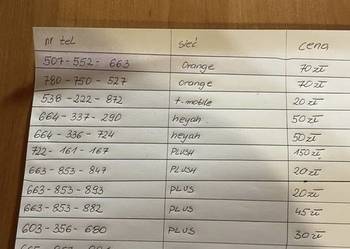 nr tel sieć cena
507-552-663 Orange 70 zł
780-750-527 Orange 70 zł
538-222-872 t-mobile 20 zł
664-337-290 heyah 50 zł
664-336-724 heyah 50 zł
722-161-167 PLUSH 150 zł
663-853-847 PLUSH 20 zł
663-853-893 PLUS 20 zł
663-853-882 PLUS 45 zł
603-356-680 PLUS 30 zł